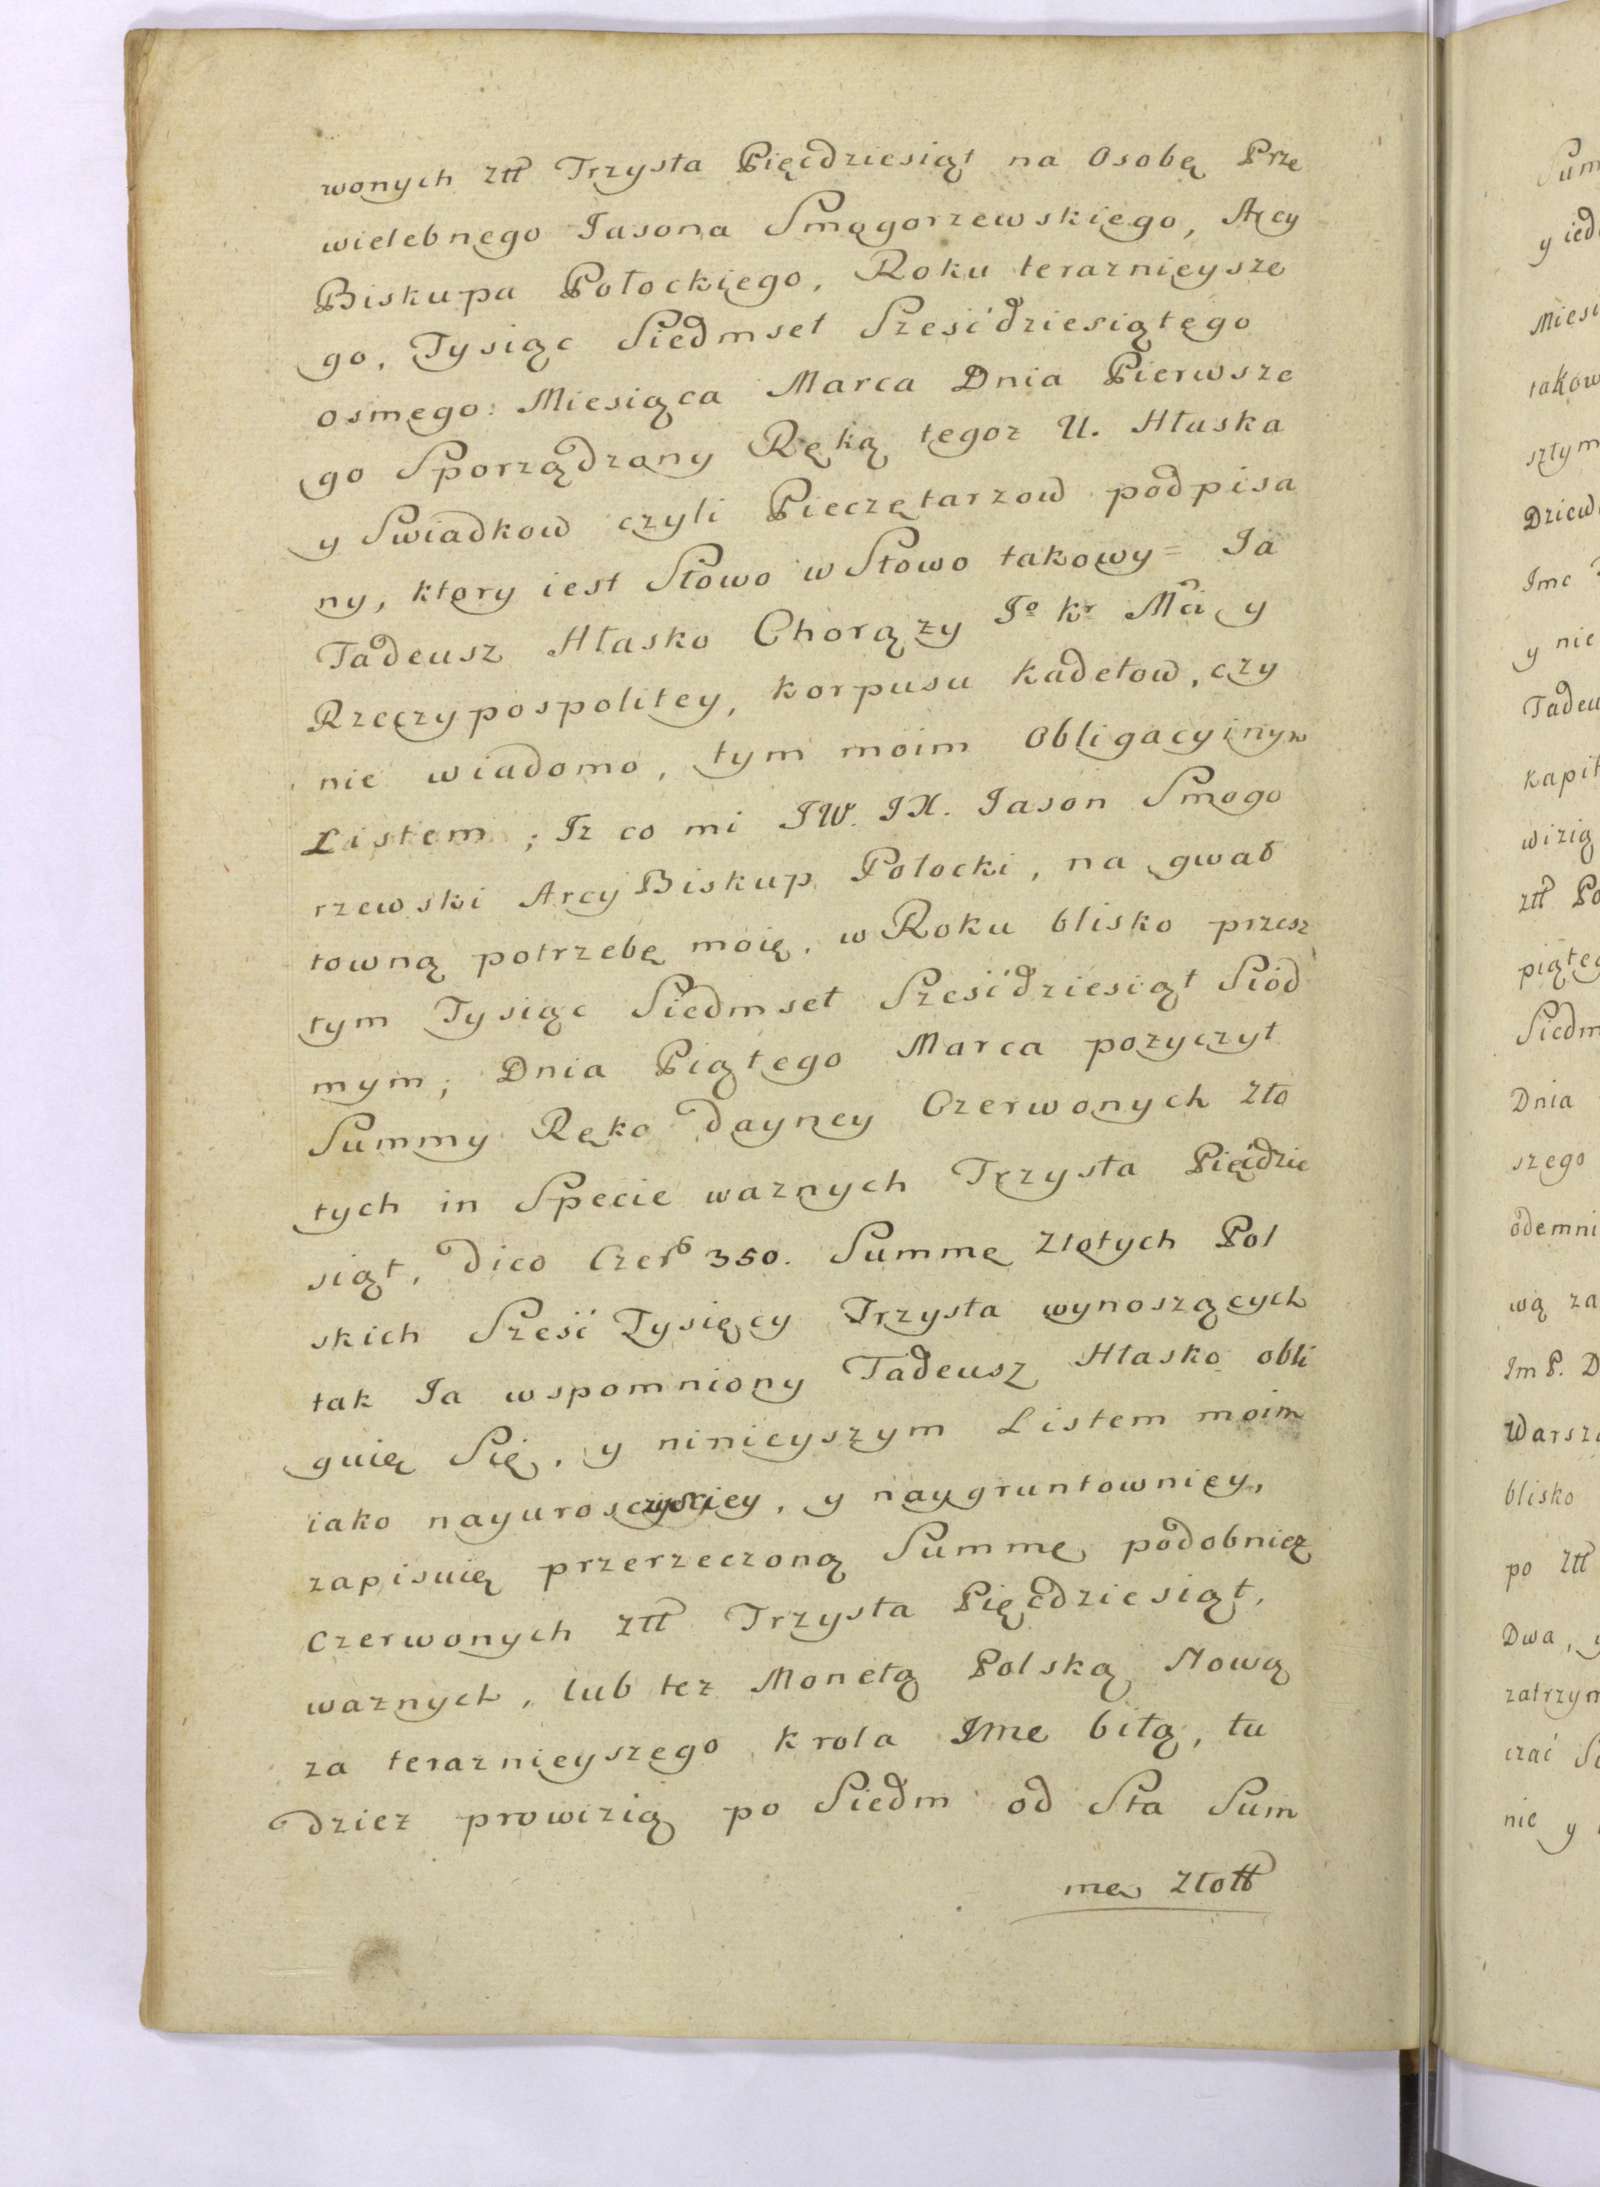 wonych Ztt Trzysta Pięcdziesiąt na Osobę Prze
wielebnego Iasona Smogorzewskiego, Arcy
Biskupa Połockiego, Roku teraznieysze
go, Tysiąc Siedmset Sześćdziesiątego
osmego: Miesiąca Marca Dnia Pierwsze
go Sporządzony Ręką tegoz U. Hłaska
y Swiadkow czyli Pieczętarzow podpisa
ny, ktory iest Słowo w Słowo takowy = Ia
Tadeusz Hłasko Chorązy Io kr Ma y
Rzeczypospolitey, korpusu kadetow, czy
nie wiadomo, tym moim Obligacyinym
Listem; Iz co mi JW. JX. Iason Smogo
rzewski Arcy Biskup Połocki, na gwał
towną potrzebę moię, w Roku blisko przesz
tym Tysiąc Siedmset Sześćdziesiąt Siód
mym; Dnia Piątego Marca pozyczył
Summy Ręko dayney Czerwonych Zło
tych in Specie waznych Trzysta Pięćdzie
siąt, dico Czer 350. Summę Złotych Pol
skich Sześć Tysięcy Trzysta wynoszących
tak Ia wspomniony Tadeusz Hłasko obli
guię Się, y ninieyszym Listem moim
iako nayuroczyściey, y naygruntowniey,
zapisuię przerzeczoną Summę podobniez
Czerwonych Ztt Trzysta Pięćdziesiąt,
waznych, lub tez Monetą Polską Nową
za terazneyszego krola Jme bitą, tu
dziez prowizią po Siedm od Sta Sum
mę Złott